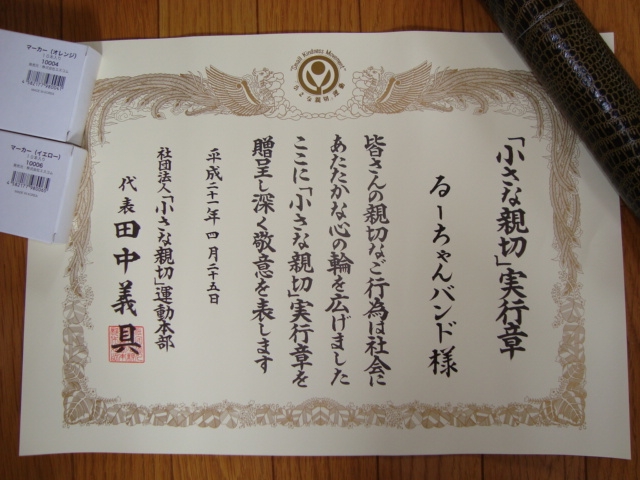 "Small Kindness Movement"
小さな親切運動
「小さな親切」実行章
るーちゃんバンド様
皆さんの親切なご行為は社会に
あたたかな心の輪を広げました
ここに「小さな親切」実行章を
贈呈し深く敬意を表します
平成二十一年四月二十五日
社団法人「小さな親切」運動本部
代表 田中義具
マーカー（オレンジ）
10004
マーカー（イエロー）
10006